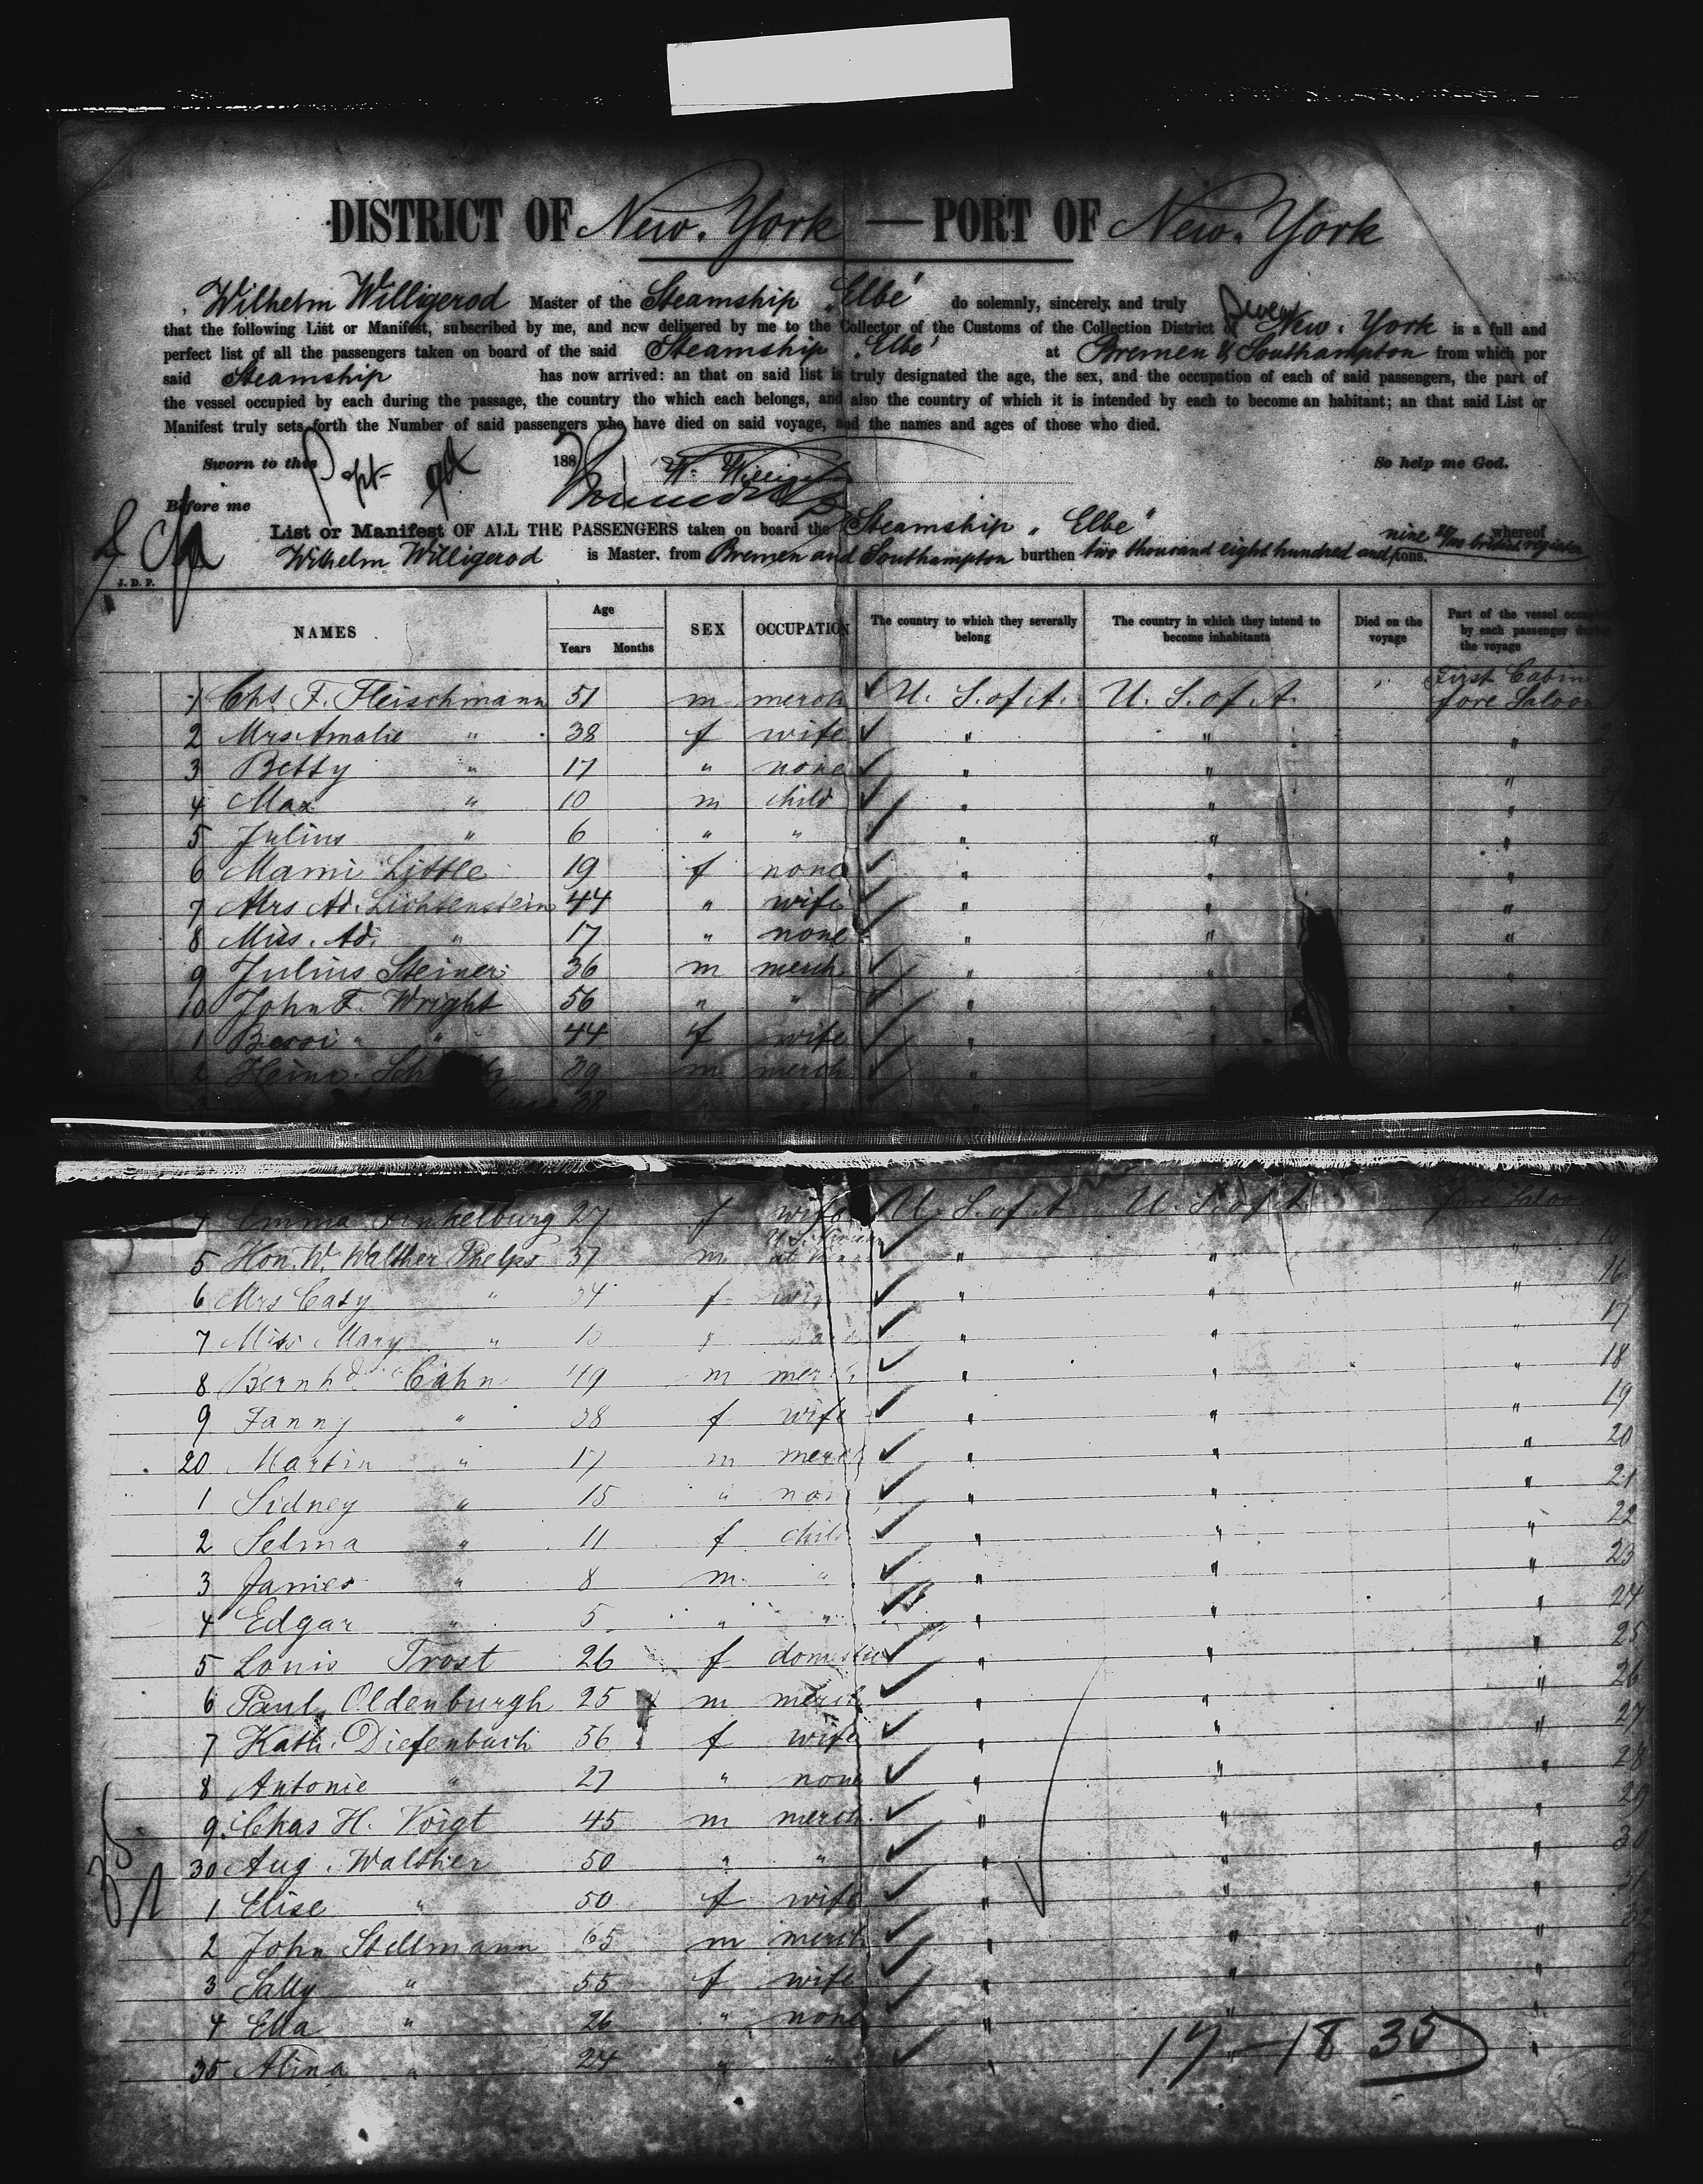 DISTRICT OF New York — PORT OF New York
Wilhelm Willigerod Master of the Steamship "Elbe" do solemnly, sincerely, and truly
that the following List or Manifest, subscribed by me, and now delivered by me to the Collector of the Customs of the Collection District of New York is a full and
perfect list of all the passengers taken on board of the said Steamship "Elbe" at Bremen & Southampton from which por
said Steamship has now arrived: an that on said list is truly designated the age, the sex, and the occupation of each of said passengers, the part of
the vessel occupied by each during the passage, the country tho which each belongs, and also the country of which it is intended by each to become an habitant; an that said List or
Manifest truly sets forth the Number of said passengers who have died on said voyage, and the names and ages of those who died.
Sworn to this Sept 188 So help me God.
Before me
List or Manifest OF ALL THE PASSENGERS taken on board the Steamship "Elbe" whereof
Wilhelm Willigerod is Master, from Bremen and Southampton burthen two thousand eight hundred and nine tons.
J. D. P.
NAMES Age Years Months SEX OCCUPATION The country to which they severally belong The country in which they intend to become inhabitants Died on the voyage Part of the vessel by each passenger the voyage
1 Chs. F. Fleischmann 51 m merch U. S. of A. U. S. of A. First Cabin fore Saloon
2 Mrs Amalie " 38 f wife " " "
3 Betty " 17 " none " " "
4 Max " 10 m child " " "
5 Julius " 6 " " " " "
6 Mami Little 19 f none " " "
7 Mrs Ad. Lichtenstein 44 " wife " " "
8 Miss. Ad. " 17 " none " " "
9 Julius Steiner 36 m merch " " "
10 John F. Wright 56 " " " " "
1 " 44 f wife " " "
2 Heinr. 39 m merch "
38
Emma Finkelburg 27 f wife U. S. of A. U. S. of A. fore Saloon
5 Hon. W. Walther Phelps 37 m at " " "
6 Mrs Caty " 34 f wife " " " 16
7 Miss Mary " " " " 17
8 Bernhd. Cahn 49 m merch " " " 18
9 Fanny " 38 f wife " " " 19
20 Martin " 17 m merch " " " 20
1 Sidney " 15 " none " " " 21
2 Selma " 11 f child " " " 22
3 James " 8 m " " " " 23
4 Edgar " 5 " " " " " 24
5 Louis Trost 26 f domestic " " " 25
6 Paul Oldenburgh 25 m merch " " " 26
7 Kath. Diefenbach 56 f wife " " " 27
8 Antonie " 27 " none " " " 28
9 Chas H. Voigt 45 m merch. " " " 29
30 Aug. Walther 50 " " " " " 30
1 Elise " 50 f wife " " "
2 John Stellmann 65 m merch " " " 32
3 Sally " 55 f wife " " "
4 Ella " 26 " none " " "
35 Alina " 24 " " " " "
17 — 18 35